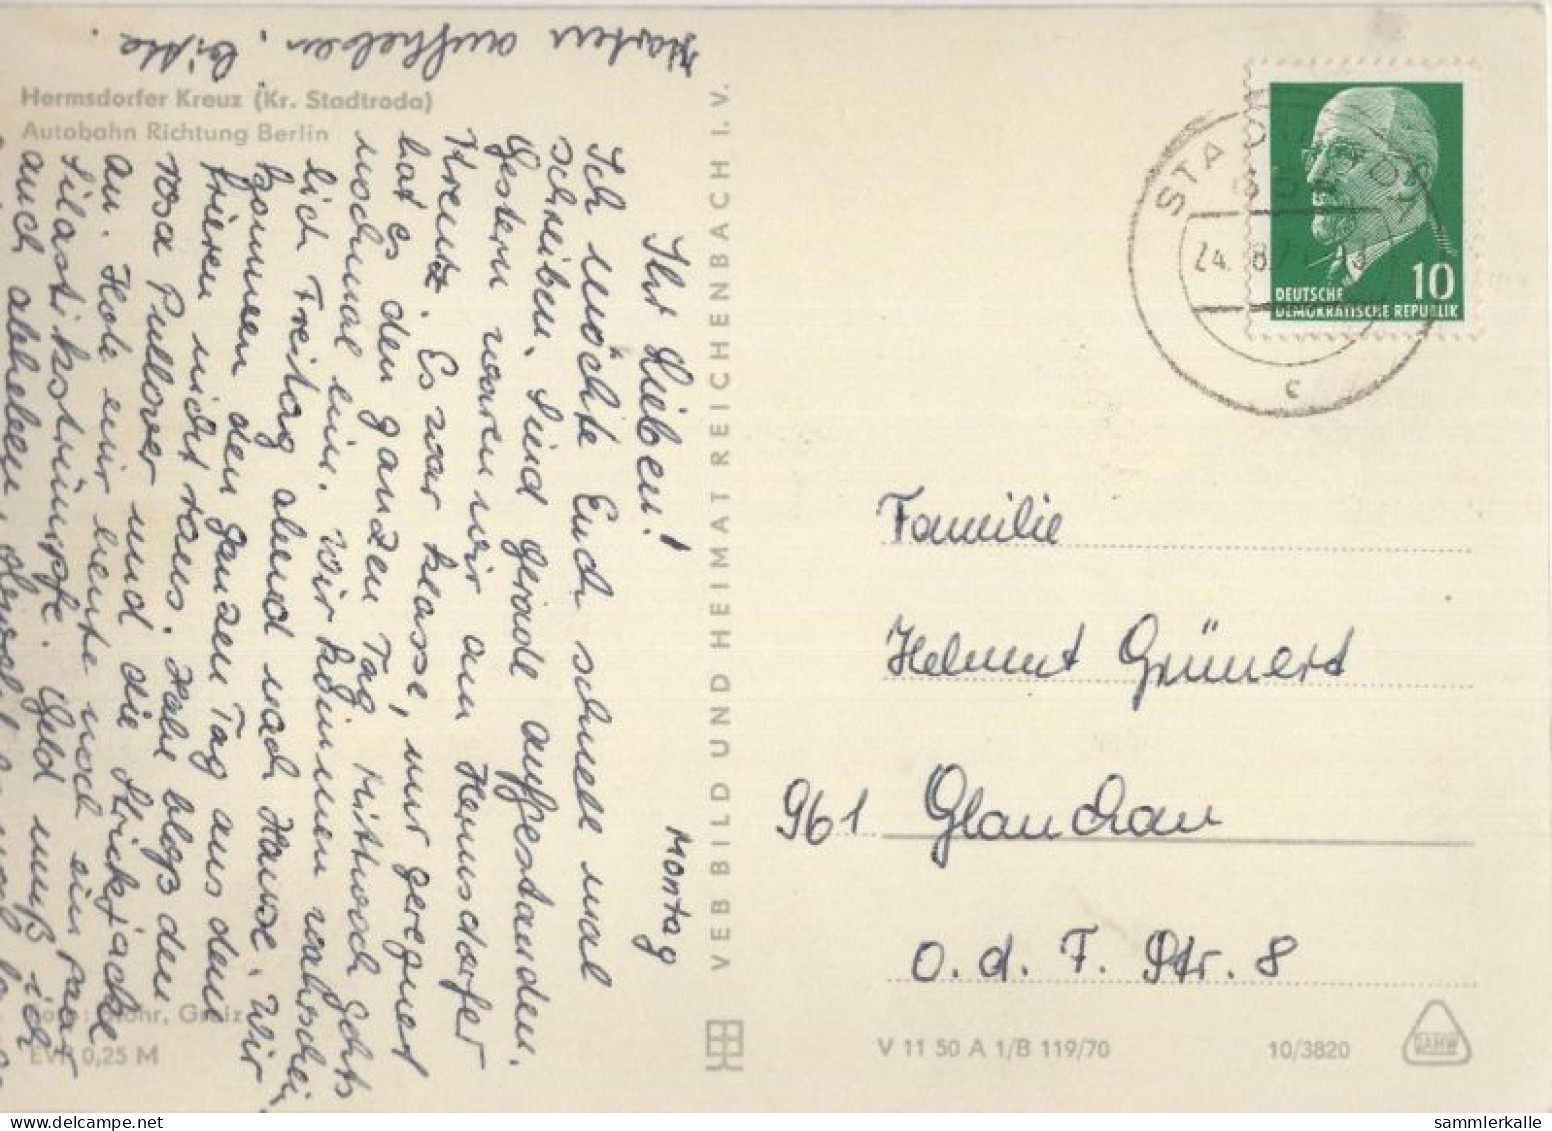 Karten aufheben, bitte.
Hermsdorfer Kreuz (Kr. Stadtroda)
Autobahn Richtung Berlin
Montag
Ihr Lieben!
Ich möchte Euch schnell mal
schreiben. Sind gerade aufgestanden.
Gestern waren wir am Hermsdorfer
Kreutz. Es war klasse, nur geregnet
hat es den ganzen Tag. Mittwoch gehts
nochmal hin. Wir kommen wahrschein
lich Freitag abend nach Hause. Wir
kommen den ganzen Tag aus dem
frieren nicht raus. Habe bloß den
rosa Pullover und die Strickjacke
an. Hole mir heute noch ein paar
Silastikstrümpfe. Geld muß ich
auch abheben,
Foto: Mohr, Greiz
EVP 0,25 M
VEB BILD UND HEIMAT REICHENBACH I. V.
STADTRODA
24. 8.7
c
10
DEUTSCHE
DEMOKRATISCHE REPUBLIK
Familie
Helmut Grünert
961 Glauchau
O. d. F. Str. 8
V 11 50 A 1/B 119/70
10/3820
DAHW
sammlerkalle